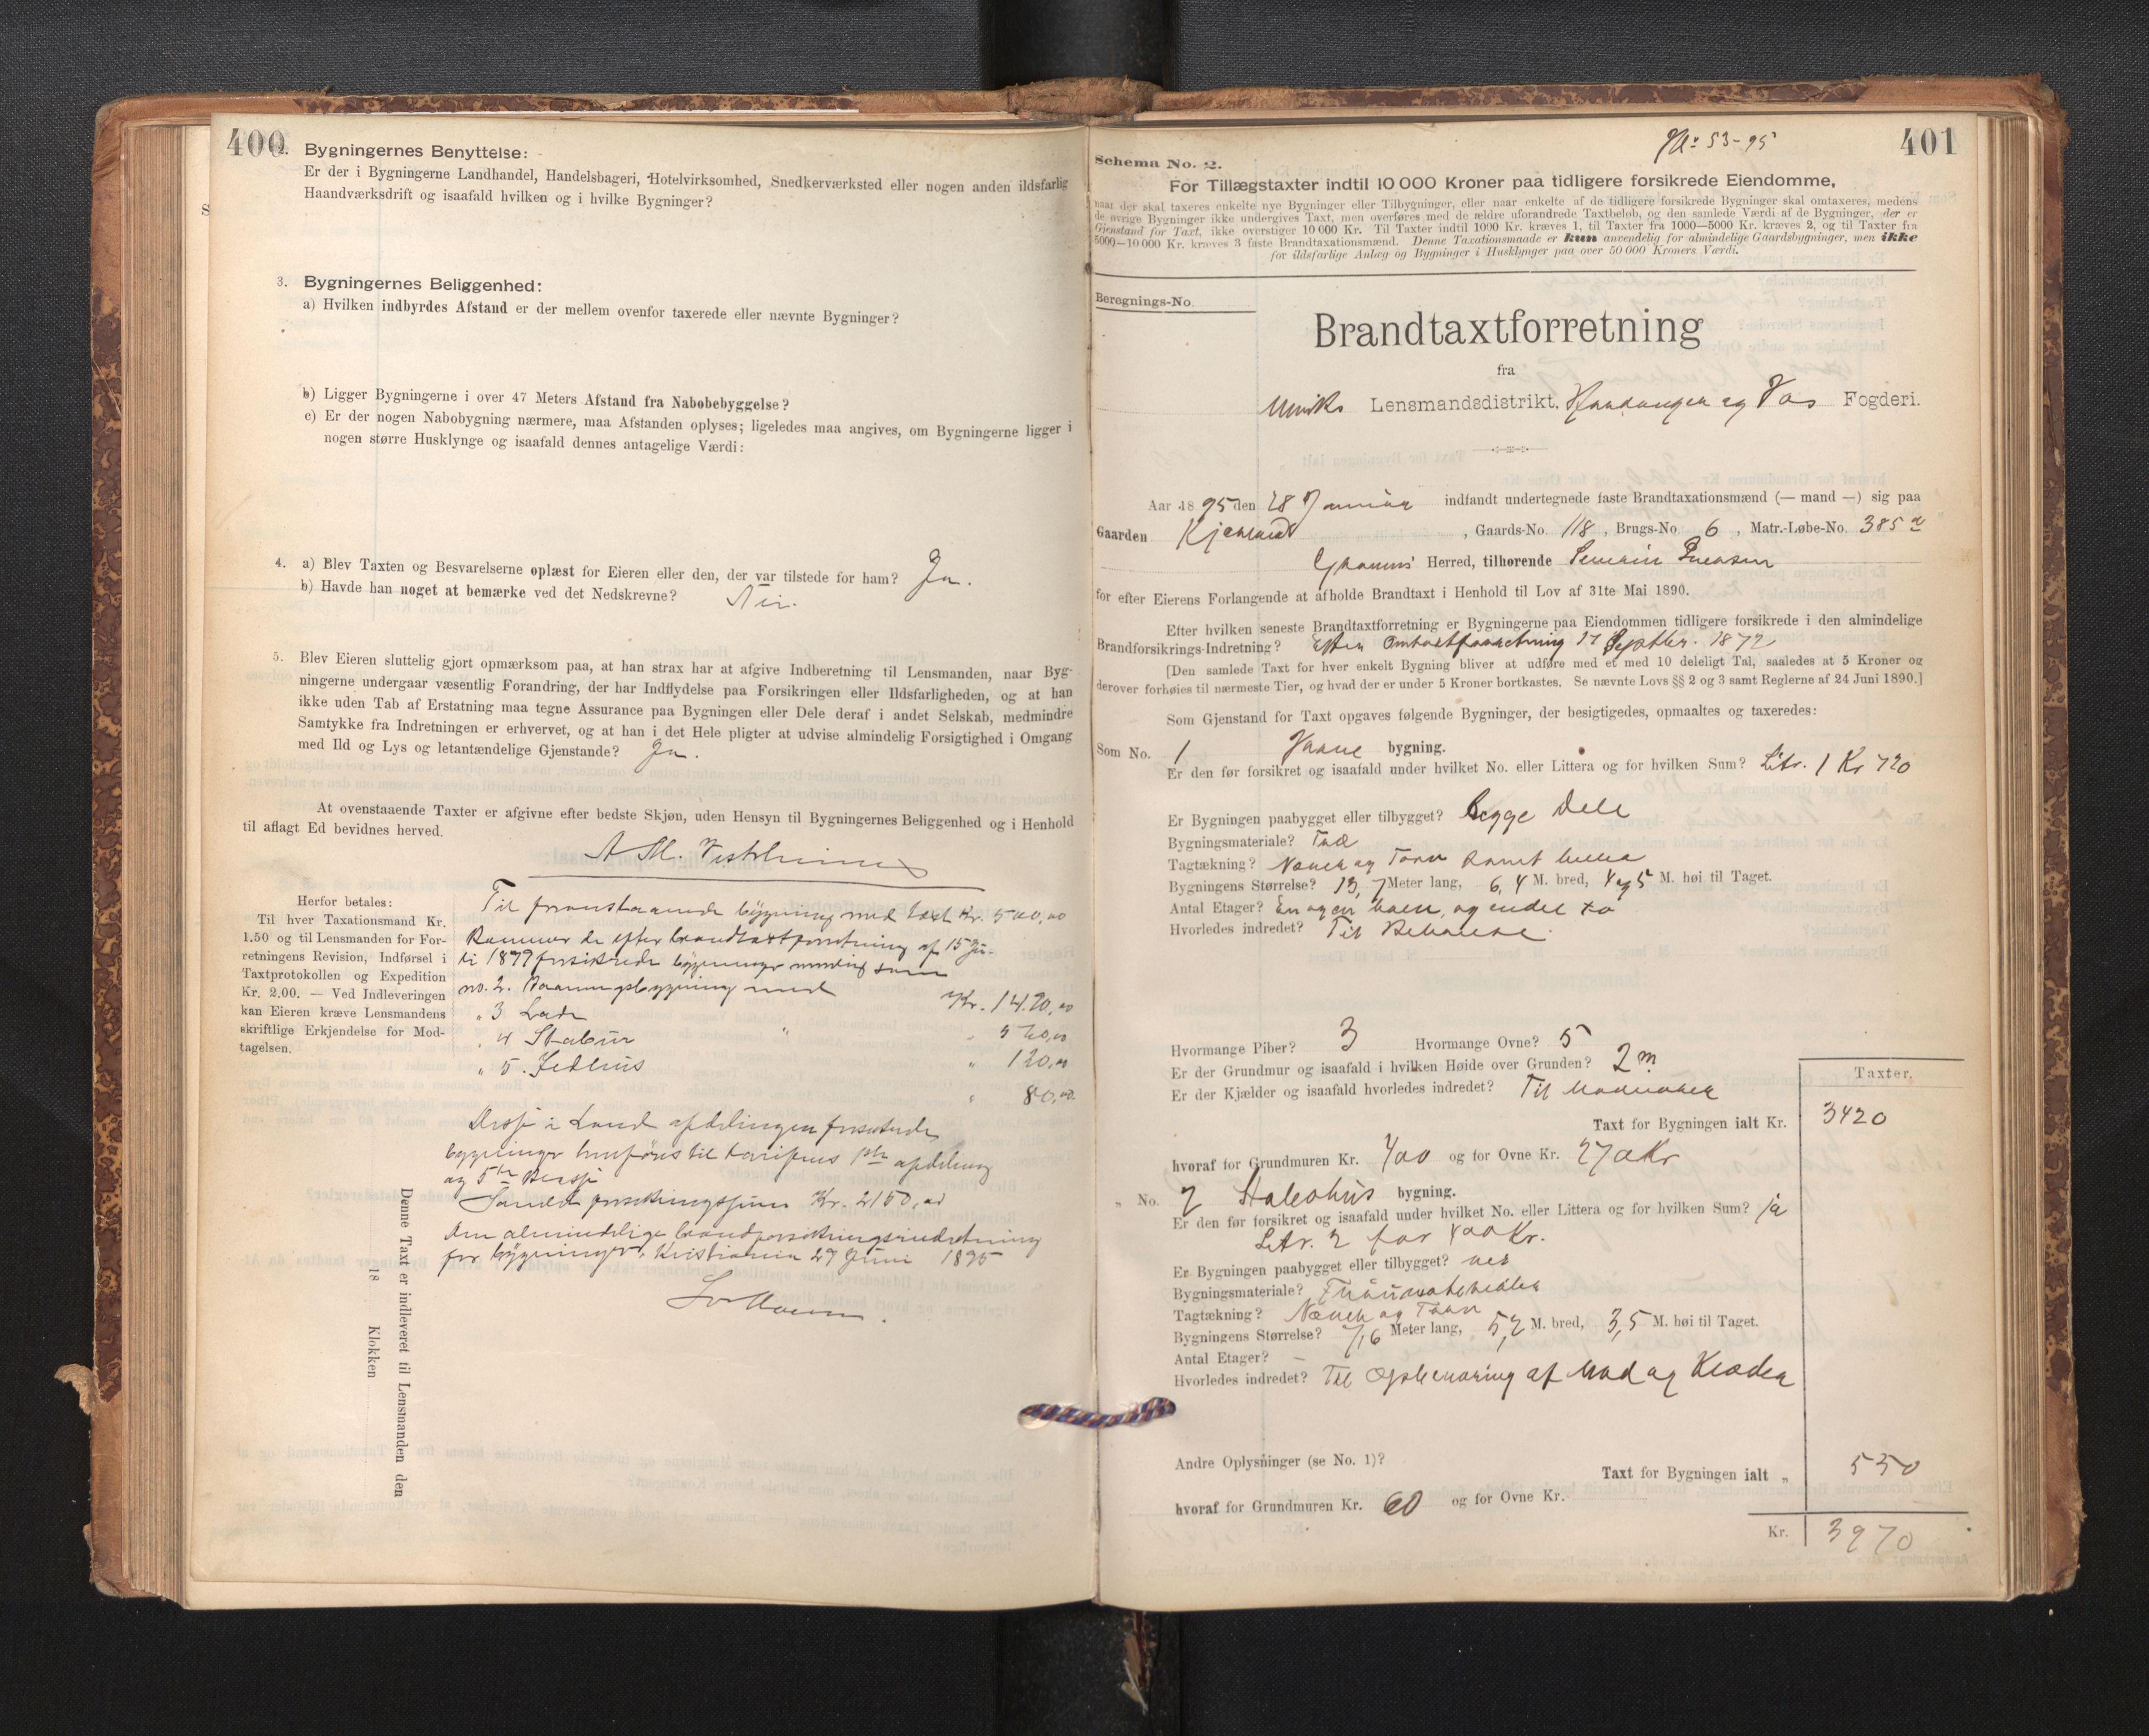 400
2. Bygningernes Benyttelse:
Er der i Bygningerne Landhandel, Handelsbageri, Hotelvirksomhed, Snedkerværksted eller nogen anden ildsfarlig
Haandværksdrift og isaafald hvilken og i hvilke Bygninger?
3. Bygningernes Beliggenhed:
a) Hvilken indbyrdes Afstand er der mellem ovenfor taxerede eller nævnte Bygninger?
b) Ligger Bygningerne i over 47 Meters Afstand fra Nabobebyggelse?
c) Er der nogen Nabobygning nærmere, maa Afstanden oplyses; ligeledes maa angives, om Bygningerne ligger i
nogen større Husklynge og isaafald dennes antagelige Værdi:
4. a) Blev Taxten og Besvarelserne oplæst for Eieren eller den, der var tilstede for ham? Ja.
b) Havde han noget at bemærke ved det Nedskrevne? Nei.
5. Blev Eieren sluttelig gjort opmærksom paa, at han strax har at afgive Indberetning til Lensmanden, naar Byg-
ningerne undergaar væsentlig Forandring, der har Indflydelse paa Forsikringen eller Ildsfarligheden, og at han
ikke uden Tab af Erstatning maa tegne Assurance paa Bygningen eller Dele deraf i andet Selskab, medmindre
Samtykke fra Indretningen er erhvervet, og at han i det Hele pligter at udvise almindelig Forsigtighed i Omgang
med Ild og Lys og letantændelige Gjenstande? Ja.
At ovenstaaende Taxter er afgivne efter bedste Skjøn, uden Hensyn til Bygningernes Beliggenhed og i Henhold
til aflagt Ed bevidnes herved.
Herfor betales:
Til hver Taxationsmand Kr.
1.50 og til Lensmanden for For-
retningens Revision, Indførsel i
Taxtprotokollen og Expedition
Kr. 2.00. — Ved Indleveringen
kan Eieren kræve Lensmandens
skriftlige Erkjendelse for Mod-
tagelsen.
Til foranstaaende bygning med taxt Kr. 500,00
kommer de efter brandtaxtforretning af 15 Ju-
li 1879 forsikrede bygninger nemlig som
no. 2. Vaaningsbygning med Kr. 1420,00
" 3 Lade
" 4 Stabur " 120,00
" 5. Ildhus " 80,00
Disse i Land afdelingen forsikrede
bygninger henføres til tarifens 1ste afdeling
og 5te klasse
Samlet forsikringssum Kr. 2150,00
Den almindelige brandforsikringsindretning
for bygninger, Kristiania 29 Juni 1895
Denne Taxt er indleveret til Lensmanden den
18 Klokken
No 53-95
401
Schema No. 2.
For Tillægstaxter indtil 10 000 Kroner paa tidligere forsikrede Eiendomme,
naar der skal taxeres enkelte nye Bygninger eller Tilbygninger, eller naar enkelte af de tidligere forsikrede Bygninger skal omtaxeres, medens
de øvrige Bygninger ikke undergives Taxt, men overføres med de ældre uforandrede Taxtbeløb, og den samlede Værdi af de Bygninger, der er
Gjenstand for Taxt, ikke overstiger 10 000 Kr. Til Taxter indtil 1000 Kr. kræves 1, til Taxter fra 1000—5000 Kr. kræves 2, og til Taxter fra
5000—10 000 Kr. kræves 3 faste Brandtaxationsmænd. Denne Taxationsmaade er kun anvendelig for almindelige Gaardsbygninger, men ikke
for ildsfarlige Anlæg og Bygninger i Husklynger paa over 50 000 Kroners Værdi.
Beregnings-No.
Brandtaxtforretning
fra
Ulviks Lensmandsdistrikt, Hardanger og Vos Fogderi.
Aar 1895 den 28 Januar indfandt undertegnede faste Brandtaxationsmænd (— mand —) sig paa
Gaarden , Gaards-No. 118, Brugs-No 6, Matr.-Løbe-No. 385 a
Herred, tilhørende Severin
for efter Eierens Forlangende at afholde Brandtaxt i Henhold til Lov af 31te Mai 1890.
Efter hvilken seneste Brandtaxtforretning er Bygningerne paa Eiendommen tidligere forsikrede i den almindelige
Brandforsikrings-Indretning? Efter Omtaxtforretning 17 Septbr. 1872
[Den samlede Taxt for hver enkelt Bygning bliver at udføre med et med 10 deleligt Tal, saaledes at 5 Kroner og
derover forhøies til nærmeste Tier, og hvad der er under 5 Kroner bortkastes. Se nævnte Lovs §§ 2 og 3 samt Reglerne af 24 Juni 1890.]
Som Gjenstand for Taxt opgaves følgende Bygninger, der besigtigedes, opmaaltes og taxeredes:
Som No. 1 bygning.
Er den før forsikret og isaafald under hvilket No. eller Littera og for hvilken Sum? Litr. 1 Kr 720
Er Bygningen paabygget eller tilbygget? begge Dele
Bygningsmateriale? Træ
Tagtækning? Næver og Torv samt
Bygningens Størrelse? 13,7 Meter lang, 6,4 M. bred, 4 og 5 M. høi til Taget.
Antal Etager? En og en halv, og endel to
Hvorledes indredet? Til Beboelse.
Hvormange Piber? 3 Hvormange Ovne? 5
Er der Grundmur og isaafald i hvilken Høide over Grunden? 2 m
Er der Kjælder og isaafald hvorledes indredet? Til Madvarer
Taxter.
Taxt for Bygningen ialt Kr. 3420
hvoraf for Grundmuren Kr. 400 og for Ovne Kr. 270 Kr
" No. 2 Stabohus bygning.
Er den før forsikret og isaafald under hvilket No. eller Littera og for hvilken Sum? ja
Litr. 2 for Kr.
Er Bygningen paabygget eller tilbygget? nei
Bygningsmateriale? Træmaterialer
Tagtækning? Næver og Torv
Bygningens Størrelse? 7,6 Meter lang, 5,2 M. bred, 3,5 M. høi til Taget.
Antal Etager? —
Hvorledes indredet? Til Opbevaring af Mad og Klæder
Andre Oplysninger (se No. 1)?
Taxt for Bygningen ialt " 550
hvoraf for Grundmuren Kr. 60 og for Ovne Kr.
Kr. 3970